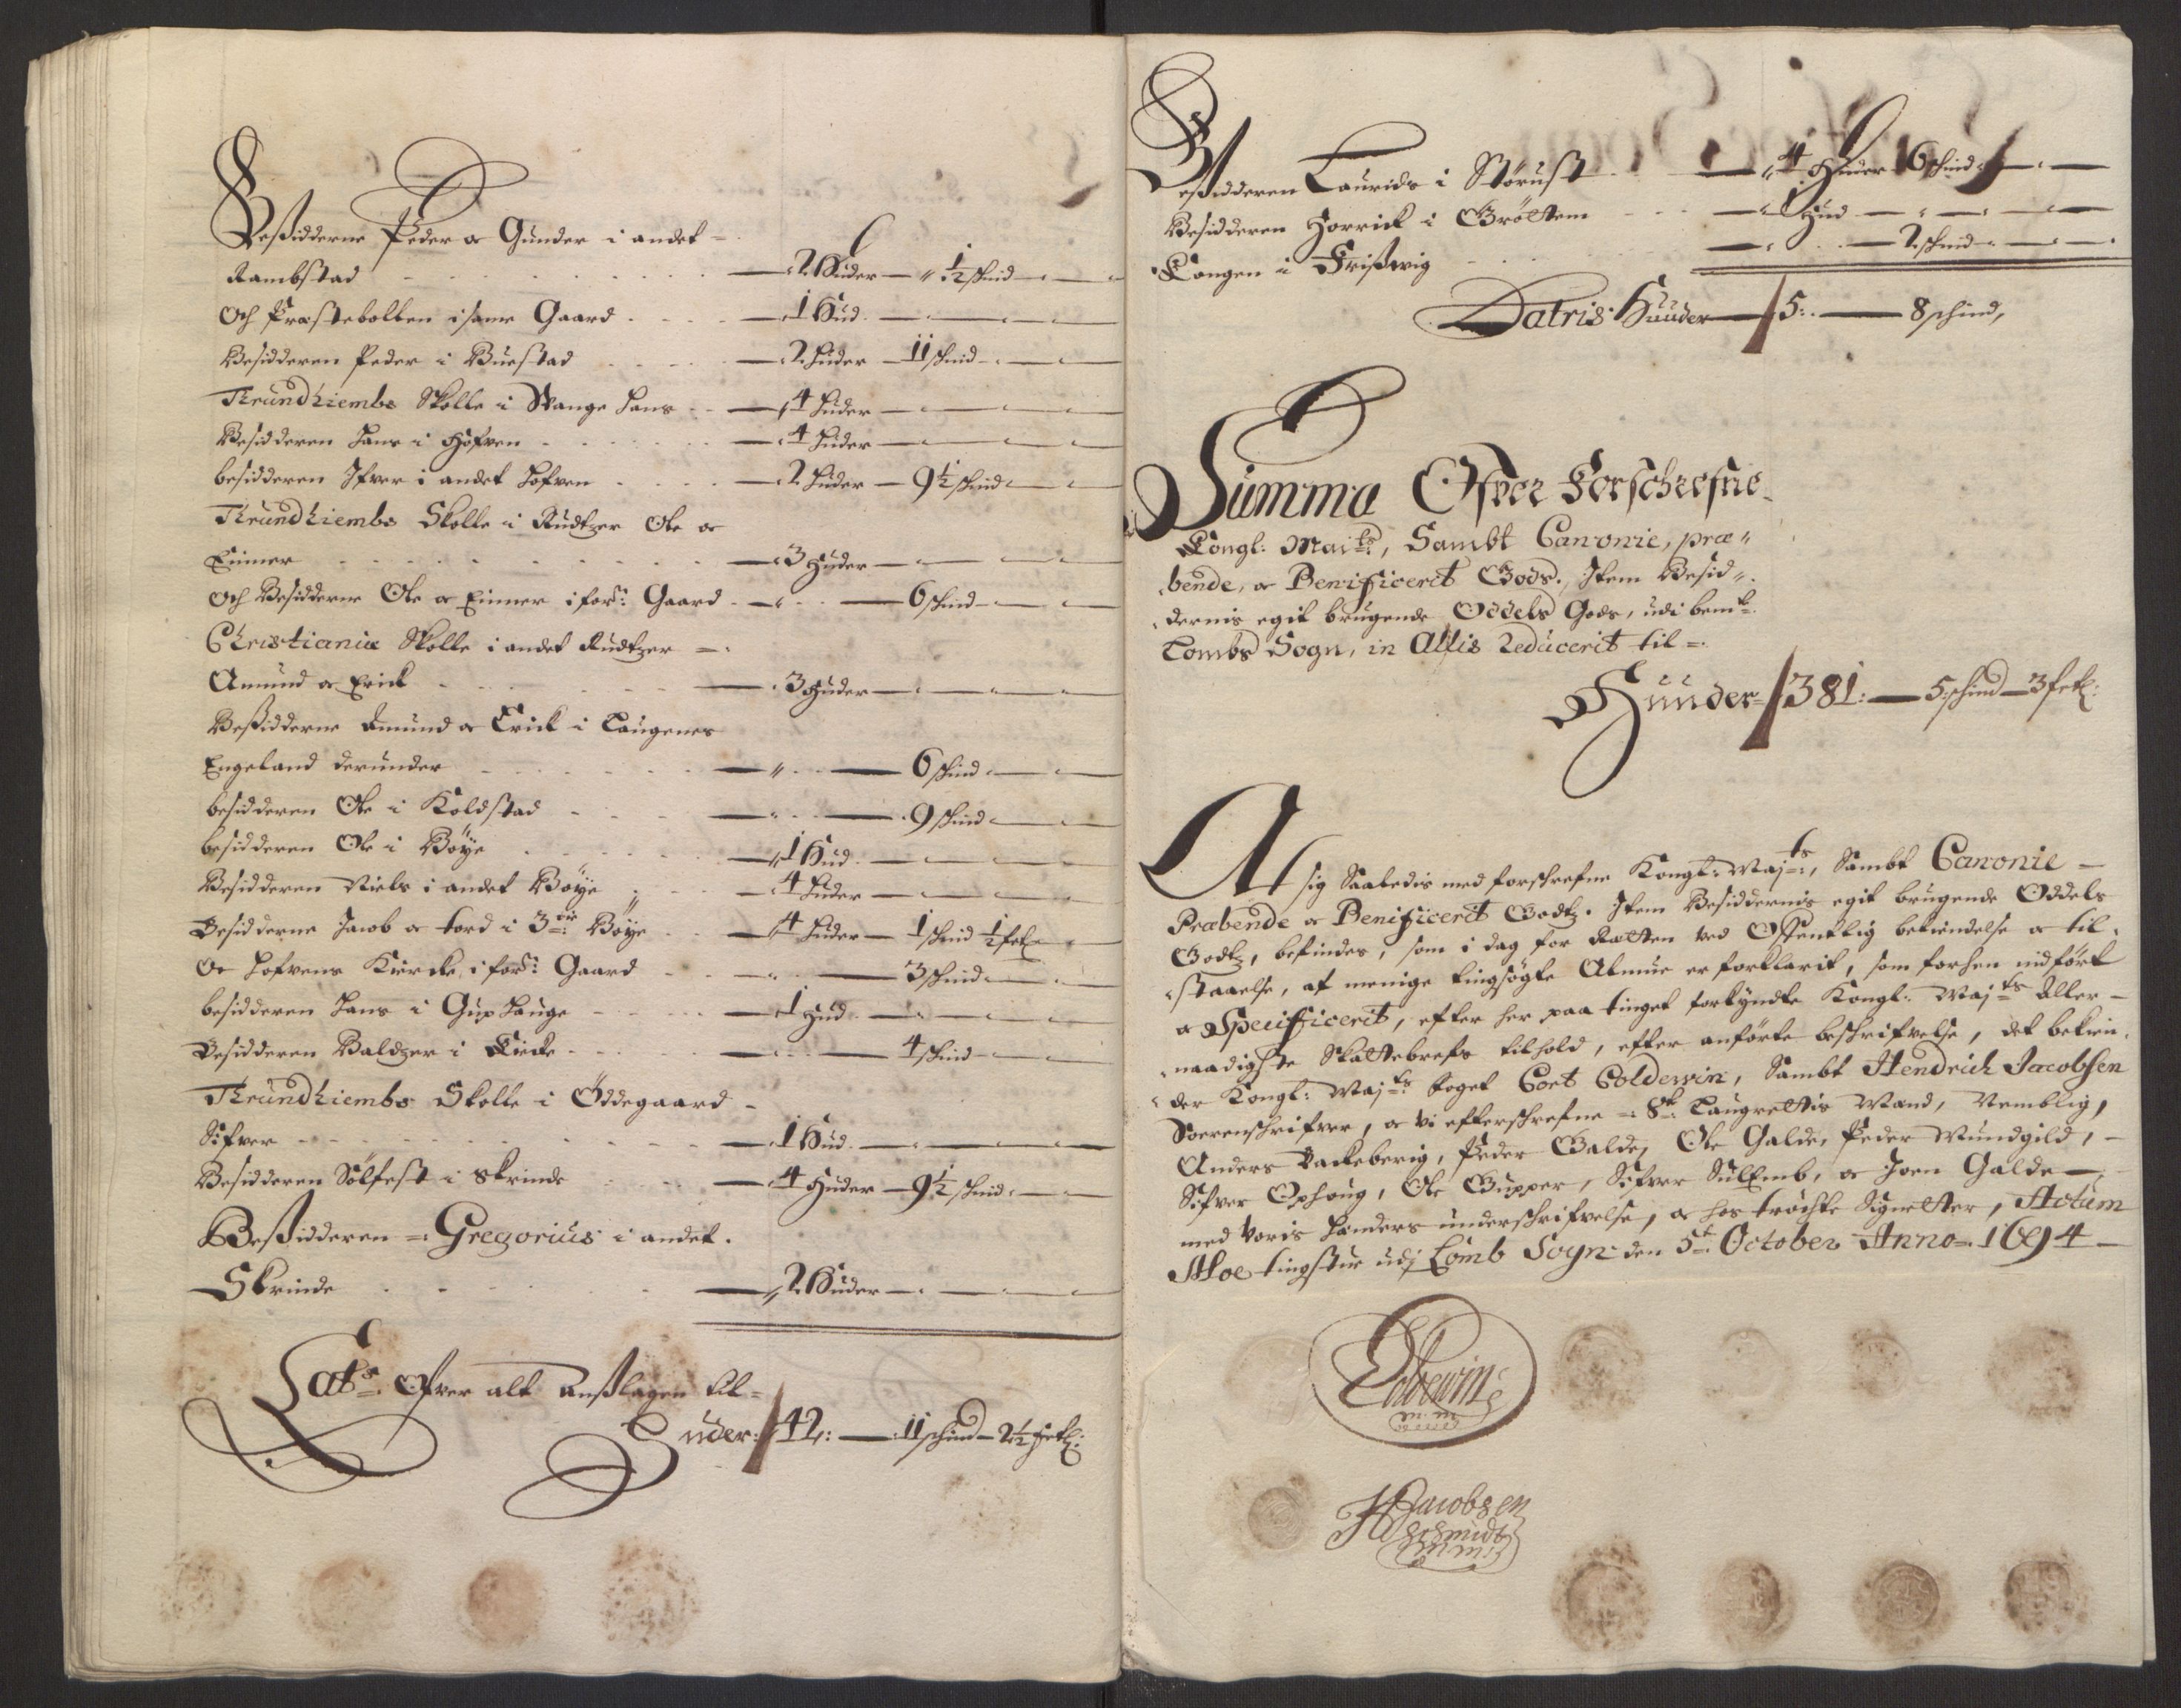 Beßidderne Peder oc Gunder i andet =
Rambstad — 2 Huder — " ½ schind
Och Præstebollen i samme Gaard — 1 Hud
Besidderen Peder i Buestad — 2 Huder — 11 schind
Trundhiembs Skolle i Wange Hans — 4 Huder
Besidderen Hans i Hofven — 4 Huder
besidderen Ifver i andet Hofven — 2 Huder — 9½ schind
Trundhiembs Skolle i Rudtzer Ole oc
Einner — 3 Huder
Och Besidderne Ole oc Einner i fors: Gaard — " — 6 schind
Christianiæ Skolle i andet Rudtzer =
Amund oc Erick — 3 Huder
Beßidderne Amund oc Erick i Laugenes
Engeland derunder — " — 6 schind
besidderen Ole i Koldstad — " — 9 schind
besidderen Ole i Böye — 1 Hud
Besidderen Niels i andet Böye — 4 Huder
Besidderne Jacob oc tord i 3die Böye — 4 Huder — 1 schind ½ sk
Oc Hofvens Kiercke i fors: Gaard — " — 3 schind
besidderen Hans i Guphauge — 1 Hud
Besidderen Baldzer i Kircke — " — 4 schind
Trundhiembs Skolle i Ödegaard =
Sifver — 1 Hud
Besidderen Sölfest i Skrinde — 4 Huder — 9½ schind
Beßidderen = Gregorius i andet
Skrinde — 2 Huder
Lats Ofver alt Anßlagen til =
Huder: 42: — 11 schind — 2½
Beßidderen Laurids i Störust — 4 Huder 6 schind
Besidderen Horrick i Gröttem — 1 Hud
Kongen i Frißwig — 2 schind
Latris Huuder — 5: — 8 schind,
Summa Ofver Forschrefne
Kongl: Maits, Sambt Canonie, præ"
bende, oc Benificerit Gods, Item Besid".
dernis egit brugende Oddels Gods, udi bemte
Lombs Sogn, in Allis reducerit til =
Huuder = 381: — 5 schind — 3
At sig Saaledis med forschrefne Kongl: Majts, Sambt Canonie —
Præbende oc Benificerit Godtz. Item Besiddernis egit brugende Oddels
Godtz, befindes, som i dag for Retten ved Offentlig bekiendelse oc til,
staaelse, af menige tingsögte Almue er forklarit, som forhen indfört
oc Specificerit, efter her paa tinget forkyndte Kongl: Majts Aller —
naadigste Skattebrefs tilhold, efter anförte beschrifvelse, det bekien,
der Kongl: Majts foget Cort Coldewin, Sambt Hendrich Jacobsen
Sorenschrifver, oc vi efterschrefne = 8te Laugrettis Mænd, Nemblig,
Anders Backeberig, Peder Galde, Ole Galde, Peder Mundgild, —
Sifver Ophoug, Ole Gupper, Sifver Sulhemb, oc Joen Galde —,
med voris Hænders underschrifvelse, oc hos tröchte Signetter, Actum
Moe tingstue udj Lomb Sogn den 5te October Anno 1694 —
Coldewin
m m
HJacobsen
Schmidt